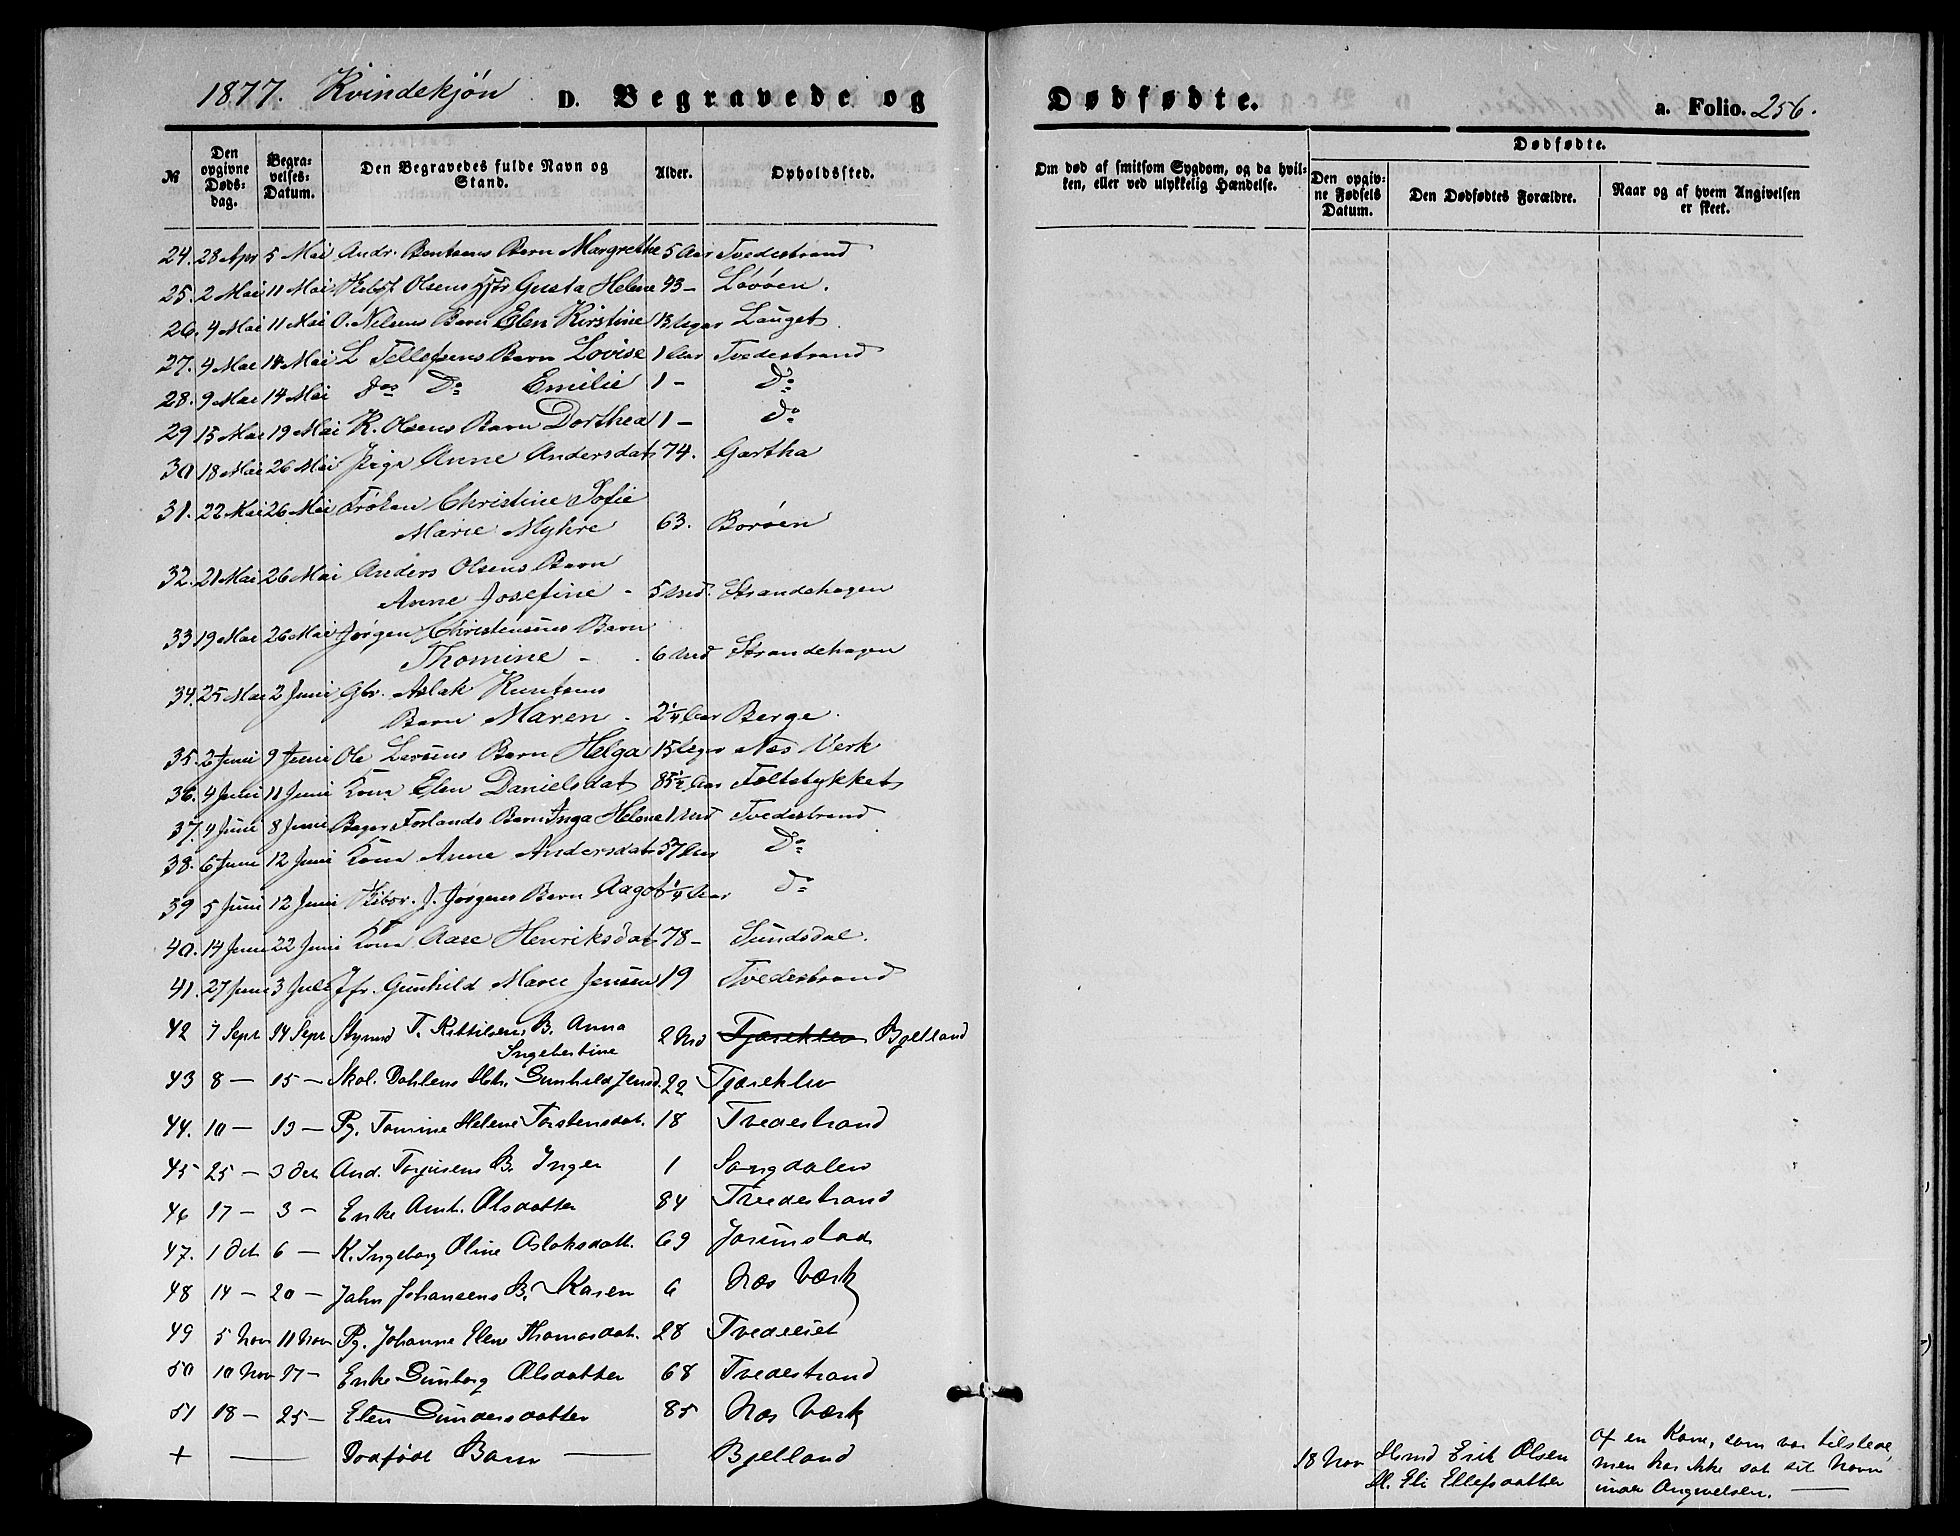 1877. Kvindekjøn D. Begravede og Dødfødte. a. Folio. 256.
№ Den opgivne Døds-dag. Begra-velses-Datum. Den Begravedes fulde Navn og Stand. Alder. Opholdssted. Om død af smitsom Sygdom, og da hvil-ken, eller ved ulykkelig Hændelse. Dødfødte. Den opgiv-ne Fødsels Datum. Den Dødfødtes Forældre. Naar og af hvem Angivelsen er skeet.
24. 28 Apr 5 Mai Andr. Bentsens Barn Margrethe 5 Aar Tvedestrand
25. 2 Mai 11 Mai Olsens Gusta Helene 43 - Løvøen.
26. 4 Mai 11 Mai O. Nilsens Barn Elen Kirstine 13 Uger Lauget
27. 9 Mai 14 Mai L Tellefsens Barn Lovise 1 Aar Tvedestrand
28. 9 Mai 14 Mai Do Do Emilie 1 - Do
29 15 Mai 19 Mai K. Olsens Barn Dorthea 1 - do
30 18 Mai 26 Mai Pige Anne Andersdat 74. Gartha
31. 22 Mai 26 Mai Frøken Christine Sofie
Marie Myhre 63. Borøen
32. 21 Mai 26 Mai Anders Olsens Barn
Anne Josefine - 5 Md. Strandehagen
33 19 Mai 26 Mai Jørgen Christensens Barn
Thomine - 6 Md Strandehagen
34. 25 Mai 2 Juni Gbr. Aslak Knutsens
Barn Maren - 2 1/4 Aar Berge.
35. 2 Juni 9 Juni Ole Larsens Barn Helga 15 Uger Næs Verk
36. 4 Juni 11 Juni Kona Elen Danielsdat 85 1/2 Aar Foltstykket
37. 4 Juni 8 Juni Bager Forlands Barn Inga Helene 1 Md Tvedestrand
38. 6 Juni 12 Juni Kona Anne Andersdat 57 Aar Do
39 5 Juni 12 Juni J. Jørgens Barn Aagot 1/4 Aar do
40. 14 Juni 22 Juni Kona Aase Henriksdat 78 - Sundsdal.
41. 27 Juni 3 Juli Jfr. Gunhild Marie Jensen 19 Tvedestrand
42 7 Sepr 14 Sepr Styrmd T. Kittilsens B. Anna 2 Md Tjæreklev Bjelland
Ingebertine
43 8 - 15 - Skol. Dahlens Hstr. Gunhild Jensd. 22 Tjæreklev
44. 10 - 13 - Pg. Tomine Helene Torstensdat. 18 Tvedestrand
45 25 - 3 Oct And. Torjusens B. Inger 1 Songdalen
46 17 - 3 - Enke Olsdatter 84 Tvedestrand
47. 1 Oct 6 - K. Ingeborg Oline Aslaksdatt. 69 Jorunstad
48 14 - 20 - Jahn Johansens B. Karen 6 Næs Værk
49 5 Nov 11 Nov Pg. Johanne Elene Thomasdat. 28 Tvedeeiet
50 10 Nov 17 - Enke Gunborg Olsdatter 68 Tvedestrand
51 18 - 25 - Elen Gundersdatter 85 Næs Værk
+ — Dødfødt Barn — Bjelland 18 Nov Hmd Erik Olsen
H. Eli Ellefsdatter
af en Kone, som var tilstede,
men har ikke sat sit Navn
under Angivelsen. —